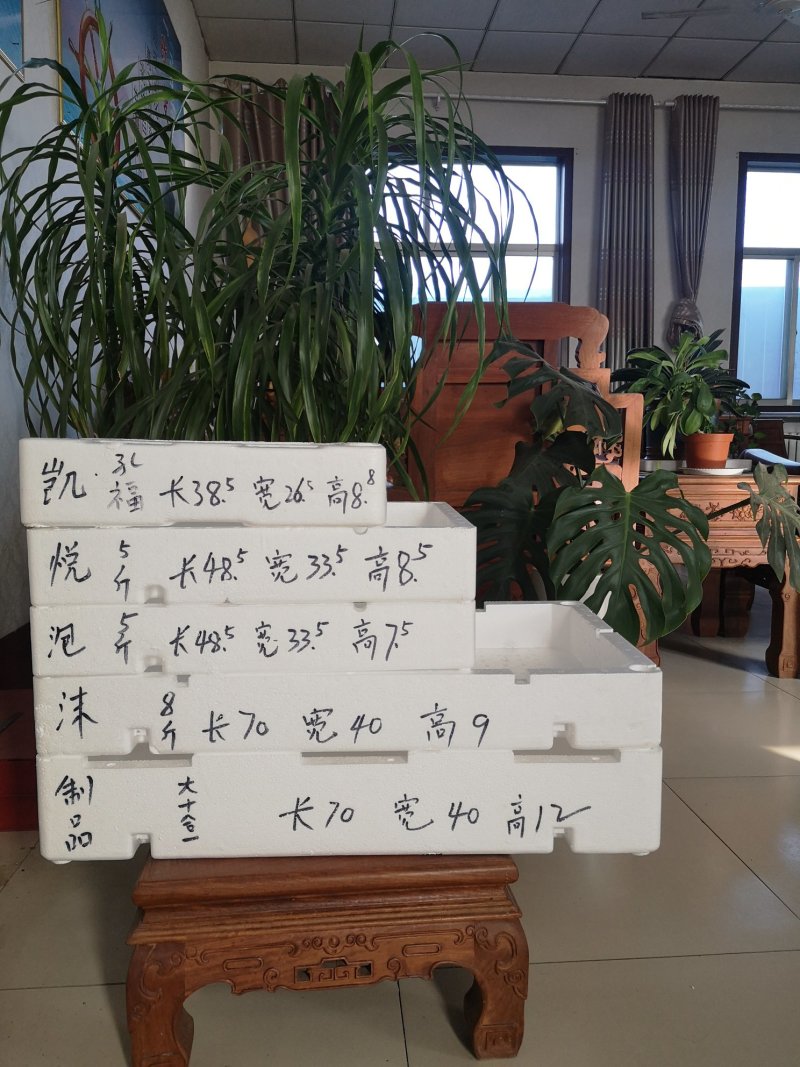 凯 福 长38.5 宽26.5 高8.8
悦 5斤 长48.5 宽33.5 高8.5
泡 5斤 长48.5 宽33.5 高7.5
沫 8斤 长70 宽40 高9
制品 大十 长70 宽40 高12